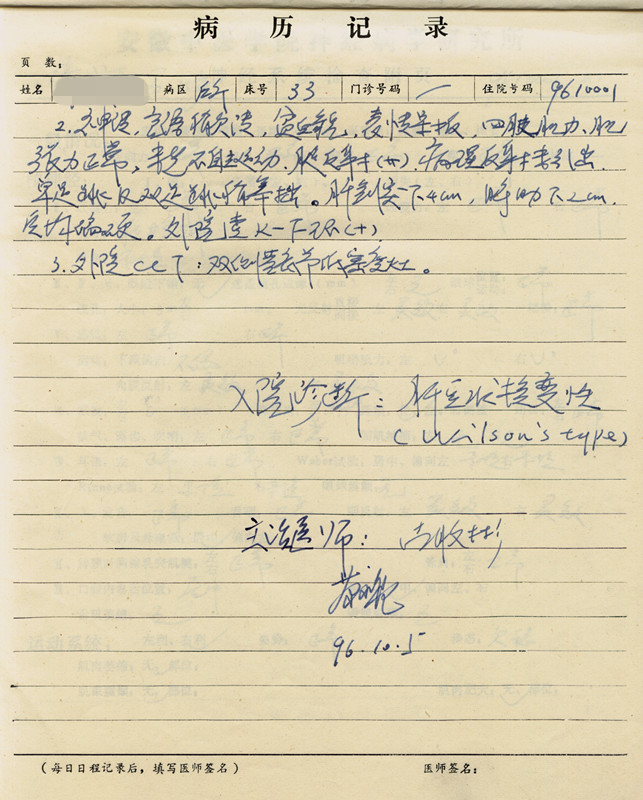 病历记录
页数：
姓名 病区 后 床号 33 门诊号码 一 住院号码 9610001
2. 神清，言语 清，流涎，表情呆板，四肢肌力、肌
张力正常，未见不自主运动，腱反射(++)，病理反射未引出，
单足跳及双足跳 。肝剑突下4cm，脾肋下2cm，
质 硬。外院查K-F环(+)
3. 外院CT：双侧 低密度灶。
入院诊断：肝豆状核变性
(Wilson's type)
主治医师：
96.10.5
（每日日程记录后，填写医师签名） 医师签名：